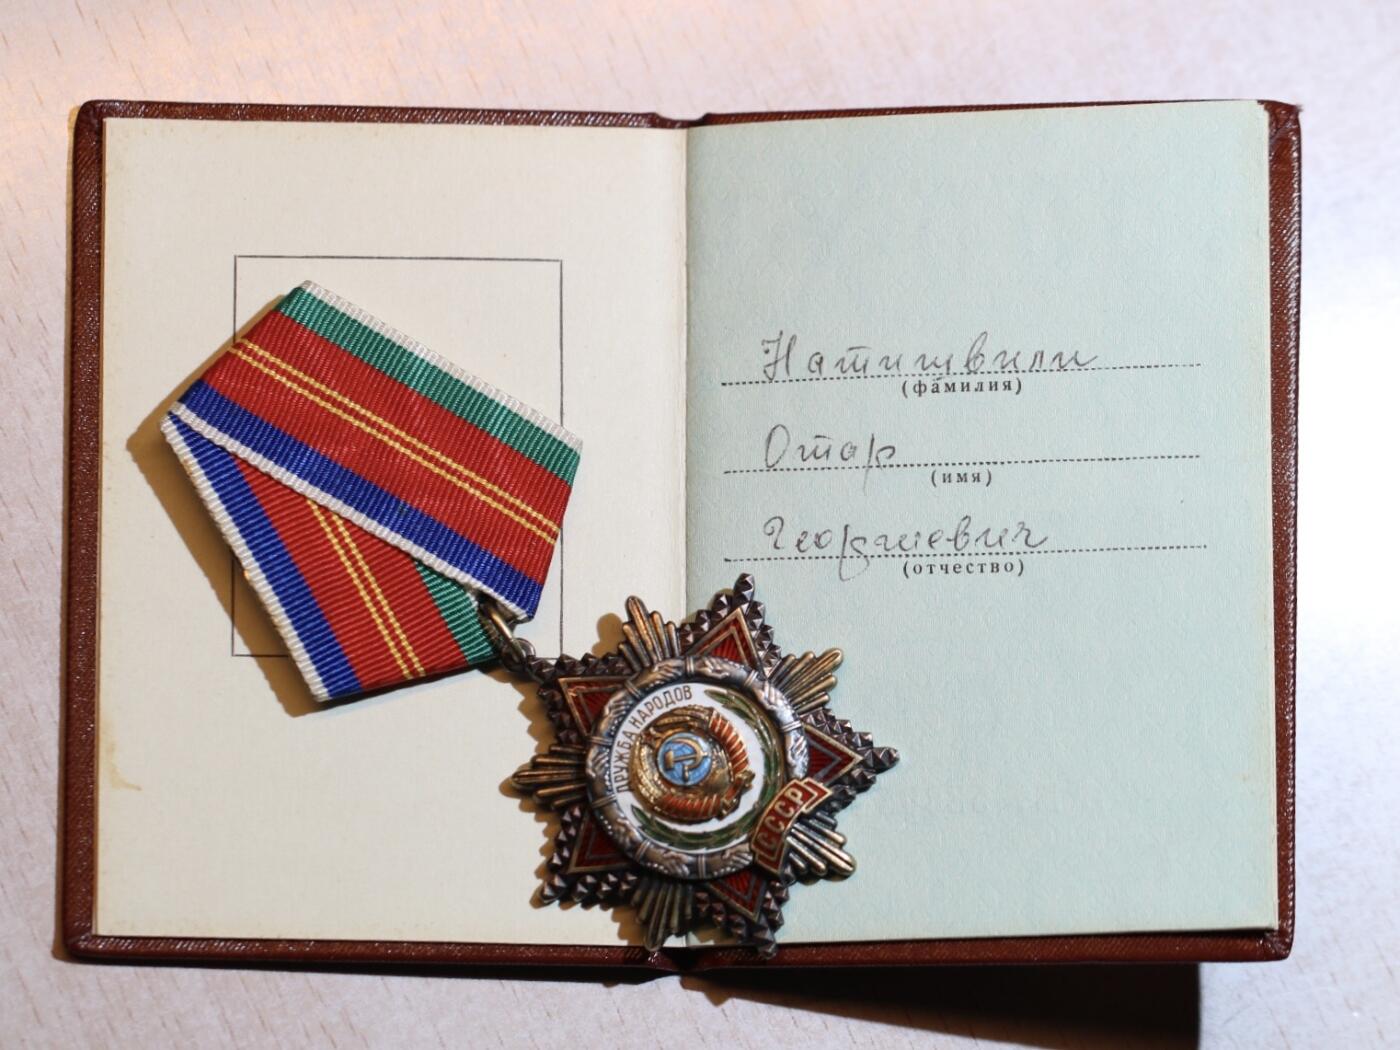 Натишвили
(фамилия)
Отар
(имя)
Георгиевич
(отчество)
ДРУЖБА НАРОДОВ
СССР